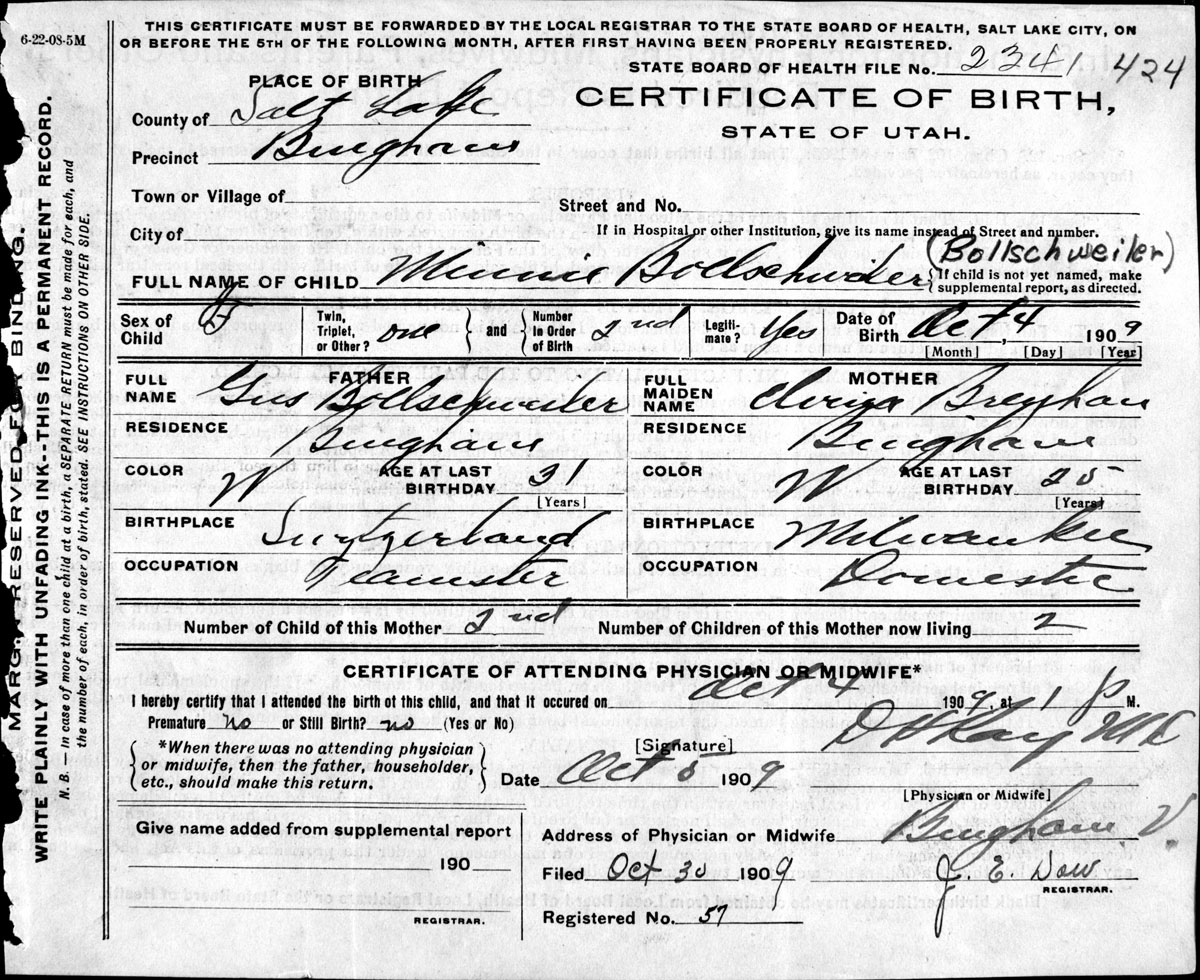 6-22-08-5M
THIS CERTIFICATE MUST BE FORWARDED BY THE LOCAL REGISTRAR TO THE STATE BOARD OF HEALTH, SALT LAKE CITY, ON
OR BEFORE THE 5TH OF THE FOLLOWING MONTH, AFTER FIRST HAVING BEEN PROPERLY REGISTERED.
STATE BOARD OF HEALTH FILE No. 2341 424
PLACE OF BIRTH
CERTIFICATE OF BIRTH,
STATE OF UTAH.
County of Salt Lake
Precinct Bingham
Town or Village of
Street and No.
If in Hospital or other Institution, give its name instead of Street and number.
City of
(Bollschweiler)
FULL NAME OF CHILD Minnie Bollschweiler { If child is not yet named, make
supplemental report, as directed.
Sex of Child F Twin, Triplet, or Other? one { and } Number in Order of Birth 2nd Legiti-mate? Yes Date of Birth Oct 4, 1909
[Month] [Day] [Year]
FATHER
FULL NAME Gus Bollschweiler
RESIDENCE Bingham
COLOR W AGE AT LAST BIRTHDAY 31 [Years]
BIRTHPLACE Switzerland
OCCUPATION Teamster
MOTHER
FULL MAIDEN NAME
RESIDENCE Bingham
COLOR W AGE AT LAST BIRTHDAY 25 [Years]
BIRTHPLACE Milwaukee
OCCUPATION Domestic
Number of Child of this Mother 2nd Number of Children of this Mother now living 2
CERTIFICATE OF ATTENDING PHYSICIAN OR MIDWIFE*
I hereby certify that I attended the birth of this child, and that it occured on Oct 4 1909, at 1 P M.
Premature no or Still Birth? no (Yes or No)
[Signature]
*When there was no attending physician
or midwife, then the father, householder,
etc., should make this return.
Date Oct 1909
[Physician or Midwife]
Give name added from supplemental report
190
REGISTRAR.
Address of Physician or Midwife Bingham
Filed Oct 30 1909 J. E. Dow
REGISTRAR.
Registered No. 57
MARGIN RESERVED FOR BINDING.
WRITE PLAINLY WITH UNFADING INK—THIS IS A PERMANENT RECORD.
N. B. — In case of more than one child at a birth, a SEPARATE RETURN must be made for each, and
the number of each, in order of birth, stated. SEE INSTRUCTIONS ON OTHER SIDE.